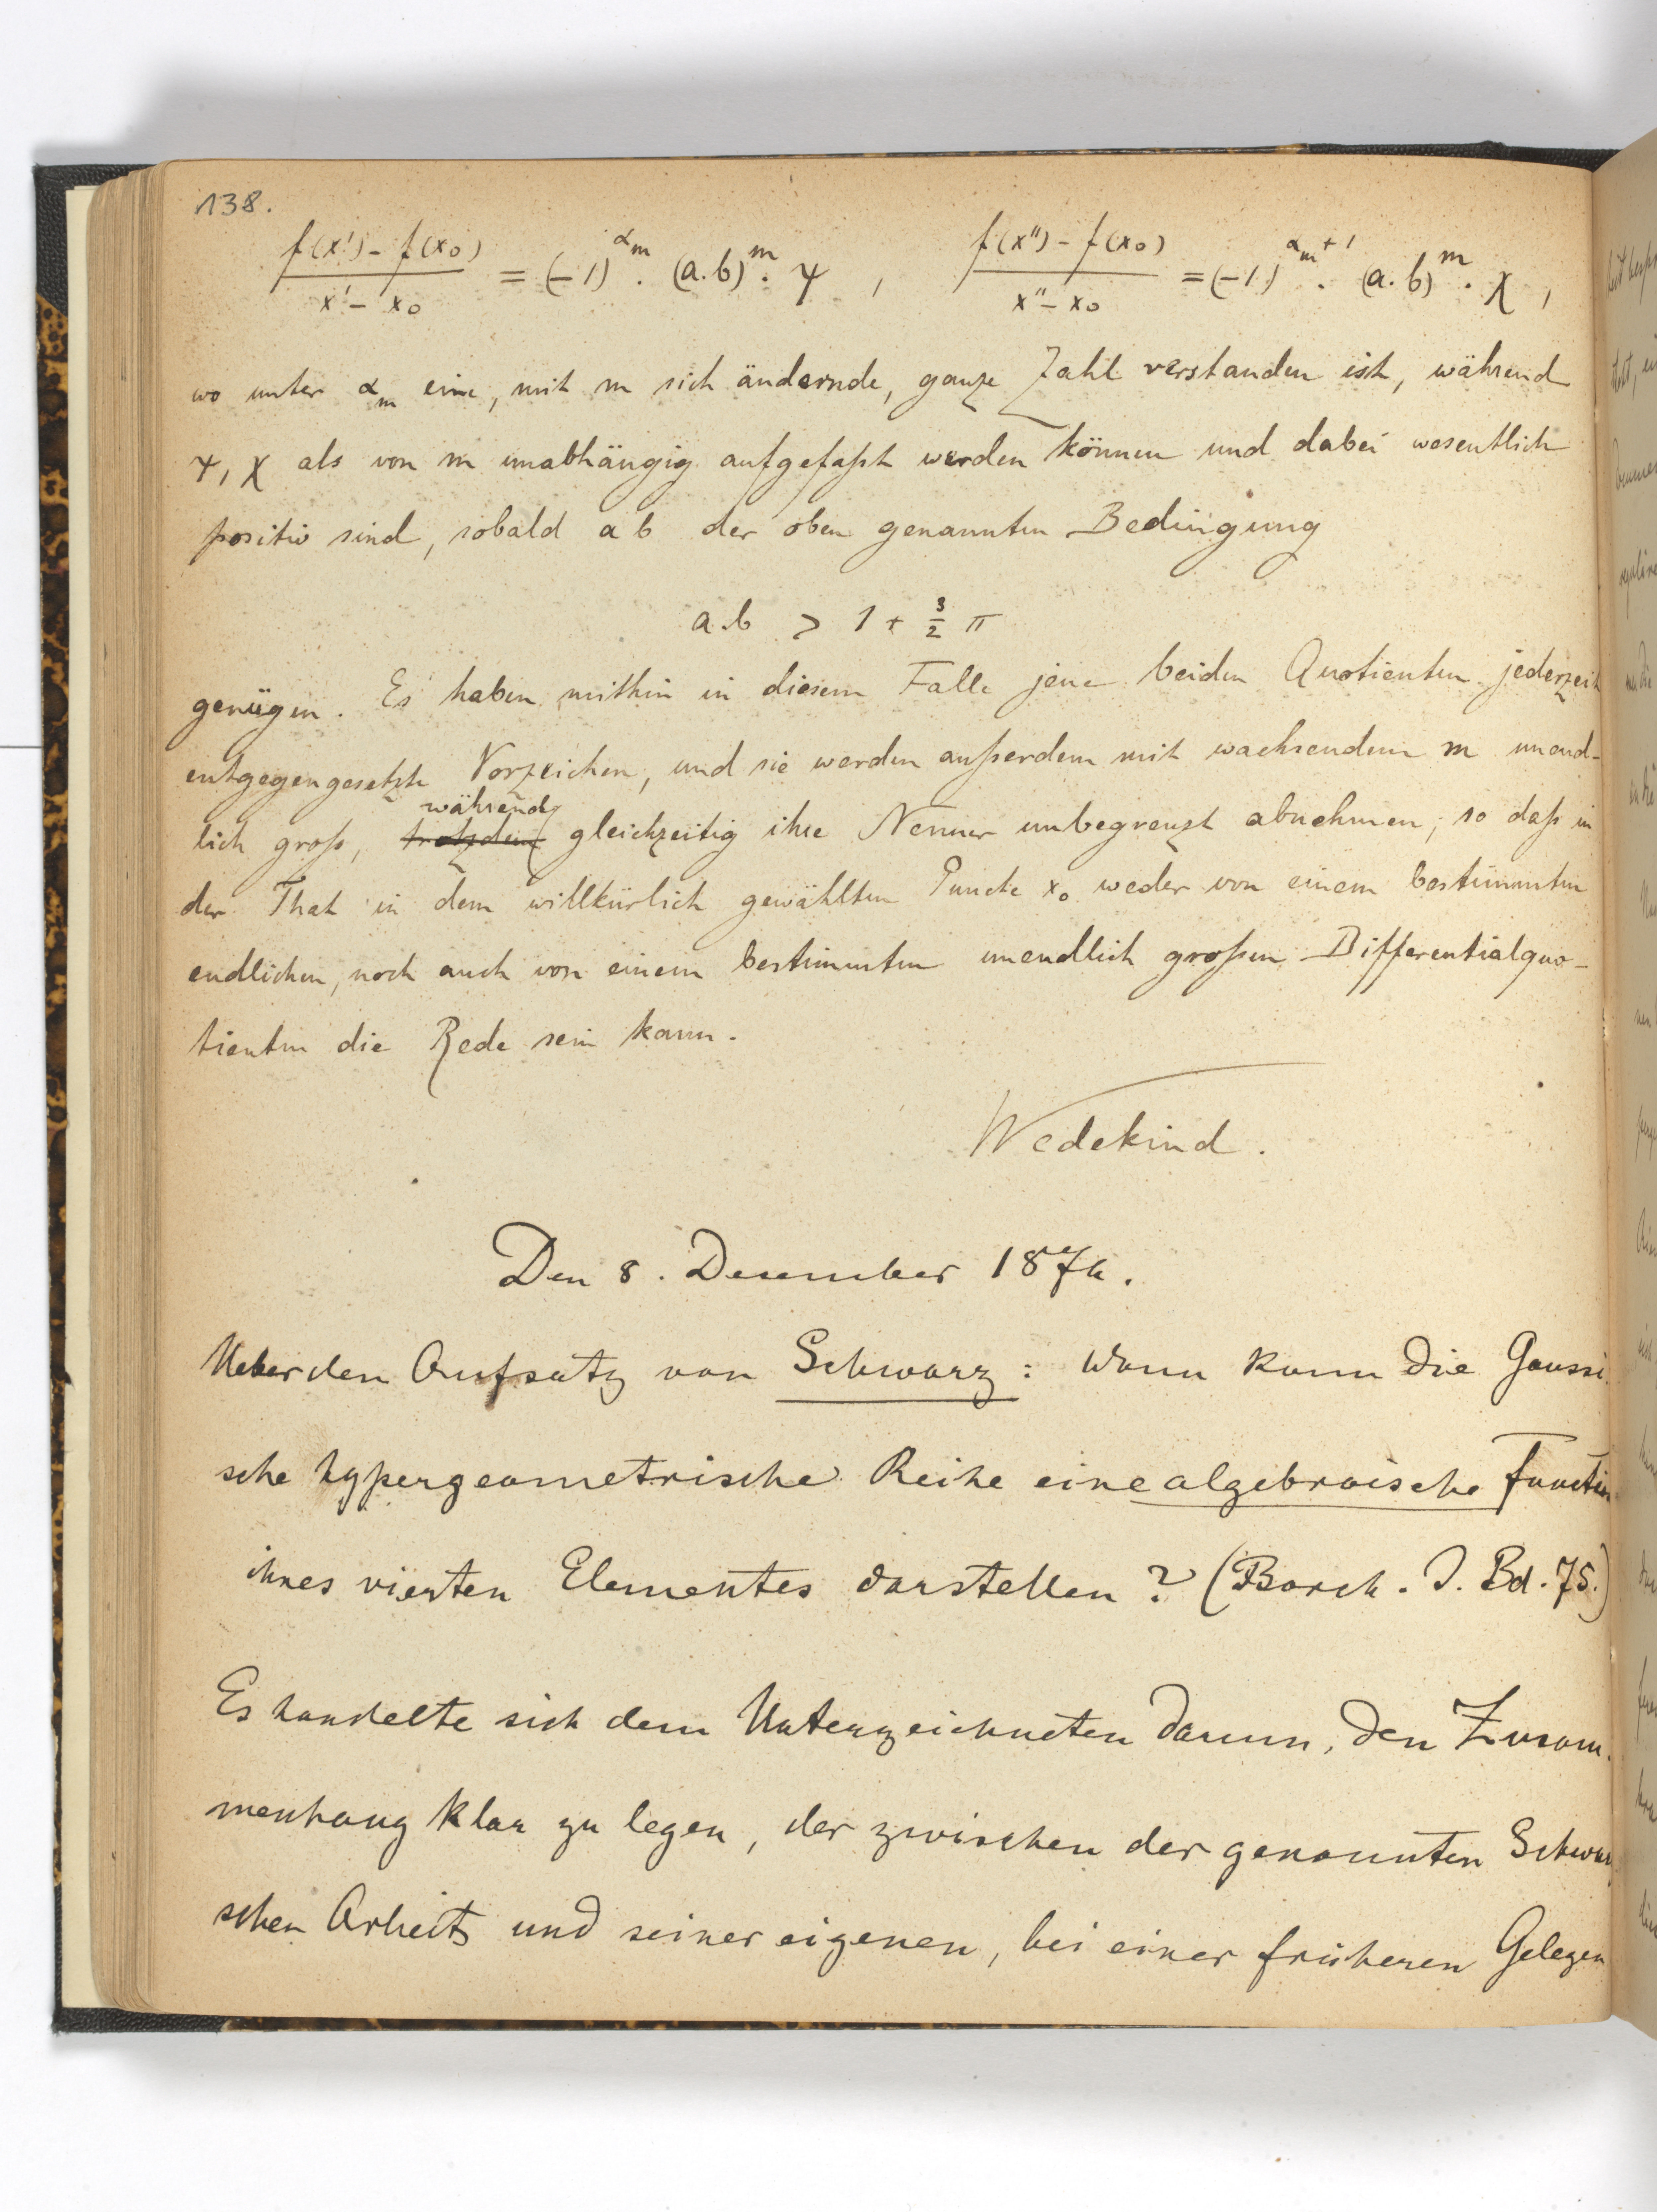 138.
f(x') - f(x₀) / x' - x₀ = (-1)^αₘ . (a.b)^m . ψ , f(x'') - f(x₀) / x'' - x₀ = (-1)^αₘ+1 . (a.b)^m . χ ,
wo unter αₘ eine, mit m sich ändernde, ganze Zahl verstanden ist, während
ψ, χ als von m unabhängig aufgefaßt werden können und dabei wesentlich
positiv sind, sobald a b der oben genannten Bedingung
a.b > 1 + 3/2 π
genügen. Es haben mithin in diesem Falle jene beiden Quotienten jederzeit
entgegengesetzte Vorzeichen, und sie werden außerdem mit wachsendem m unend-
während
lich groß, trotzdem gleichzeitig ihre Nenner unbegrenzt abnehmen; so daß in
der That in dem willkürlich gewählten Puncte x₀ weder von einem bestimmten
endlichen, noch auch von einem bestimmten unendlich großen Differentialquo-
tienten die Rede sein kann.
Wedekind.
Den 8. Dezember 1874.
Ueber den Aufsatz von Schwarz: Wann kann die Gaussi-
sche hypergeometrische Reihe eine algebraische Function
ihres vierten Elementes darstellen? (Borch. J. Bd. 75.)
Es handelte sich dem Unterzeichneten darum, den Zusam-
menhang klar zu legen, der zwischen der genannten Schwarz
schen Arbeit und seiner eigenen, bei einer früheren Gelegen